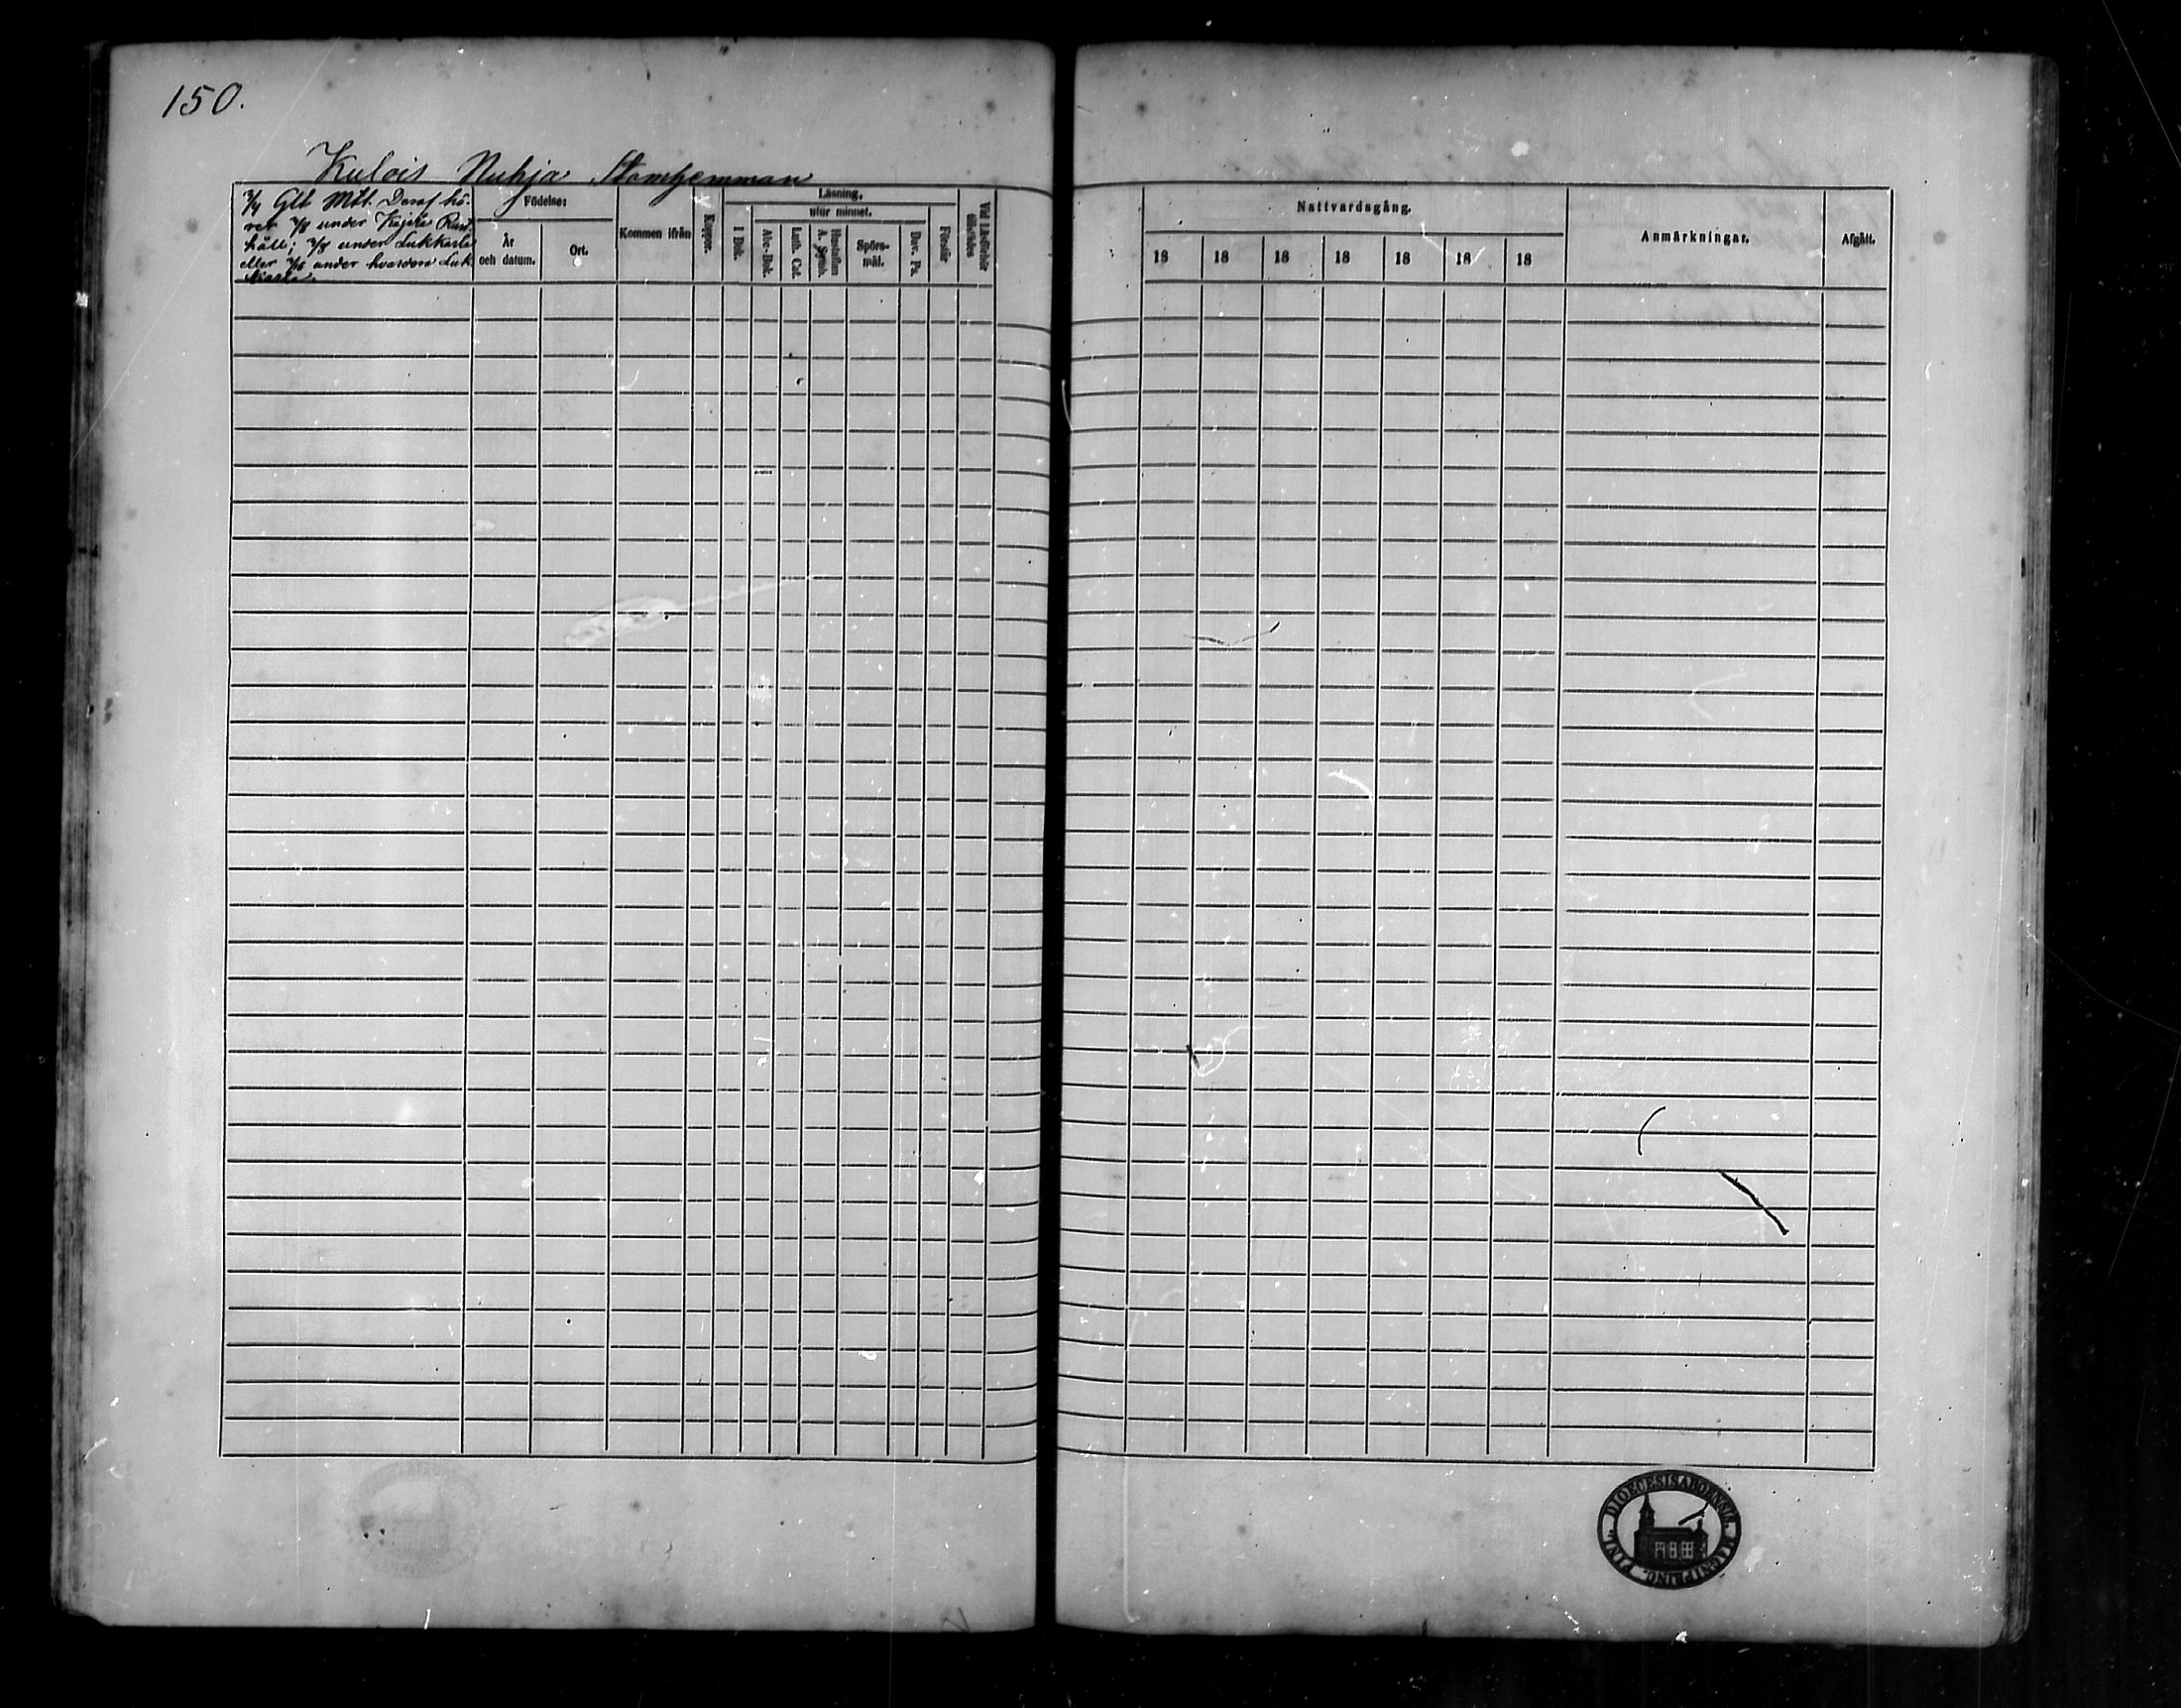 150.
Kulois Nuhja Stamhemman
3/4 Glt Mtl. Deraf hö-
rer 3/8 under Kejsre Rust-
håll; 3/8 under Lukkarla
eller 3/16 under hvardera Luk-
Födelse:
År
och datum.
Ort.
Kommen ifrån
Koppor.
Läsning,
I Bok.
utur minnet.
Abc-Bok.
Luth. Cat.
Hustaflan
A. Symb.
Spörs-
mål.
Dav. Ps.
Förstår
Vid Läsförhör
tillstädes
Nattvardsgång.
18 18 18 18 18 18 18
Anmärkningar.
Afgått.
DIOECESIS ABOENSIS. MAGNI PRINC. FINL.